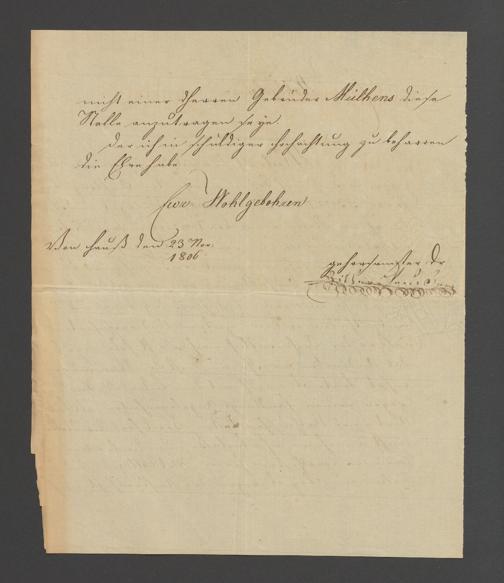 nicht einer Herren Gebrüder Mülhens diese
Stelle anzutragen seye
der ich in schuldiger Hochachtung zu beharren
die Ehre habe
Euer Wohlgebohren
Von Hauß den 23 Nov.
1806
gehorsamster Dr